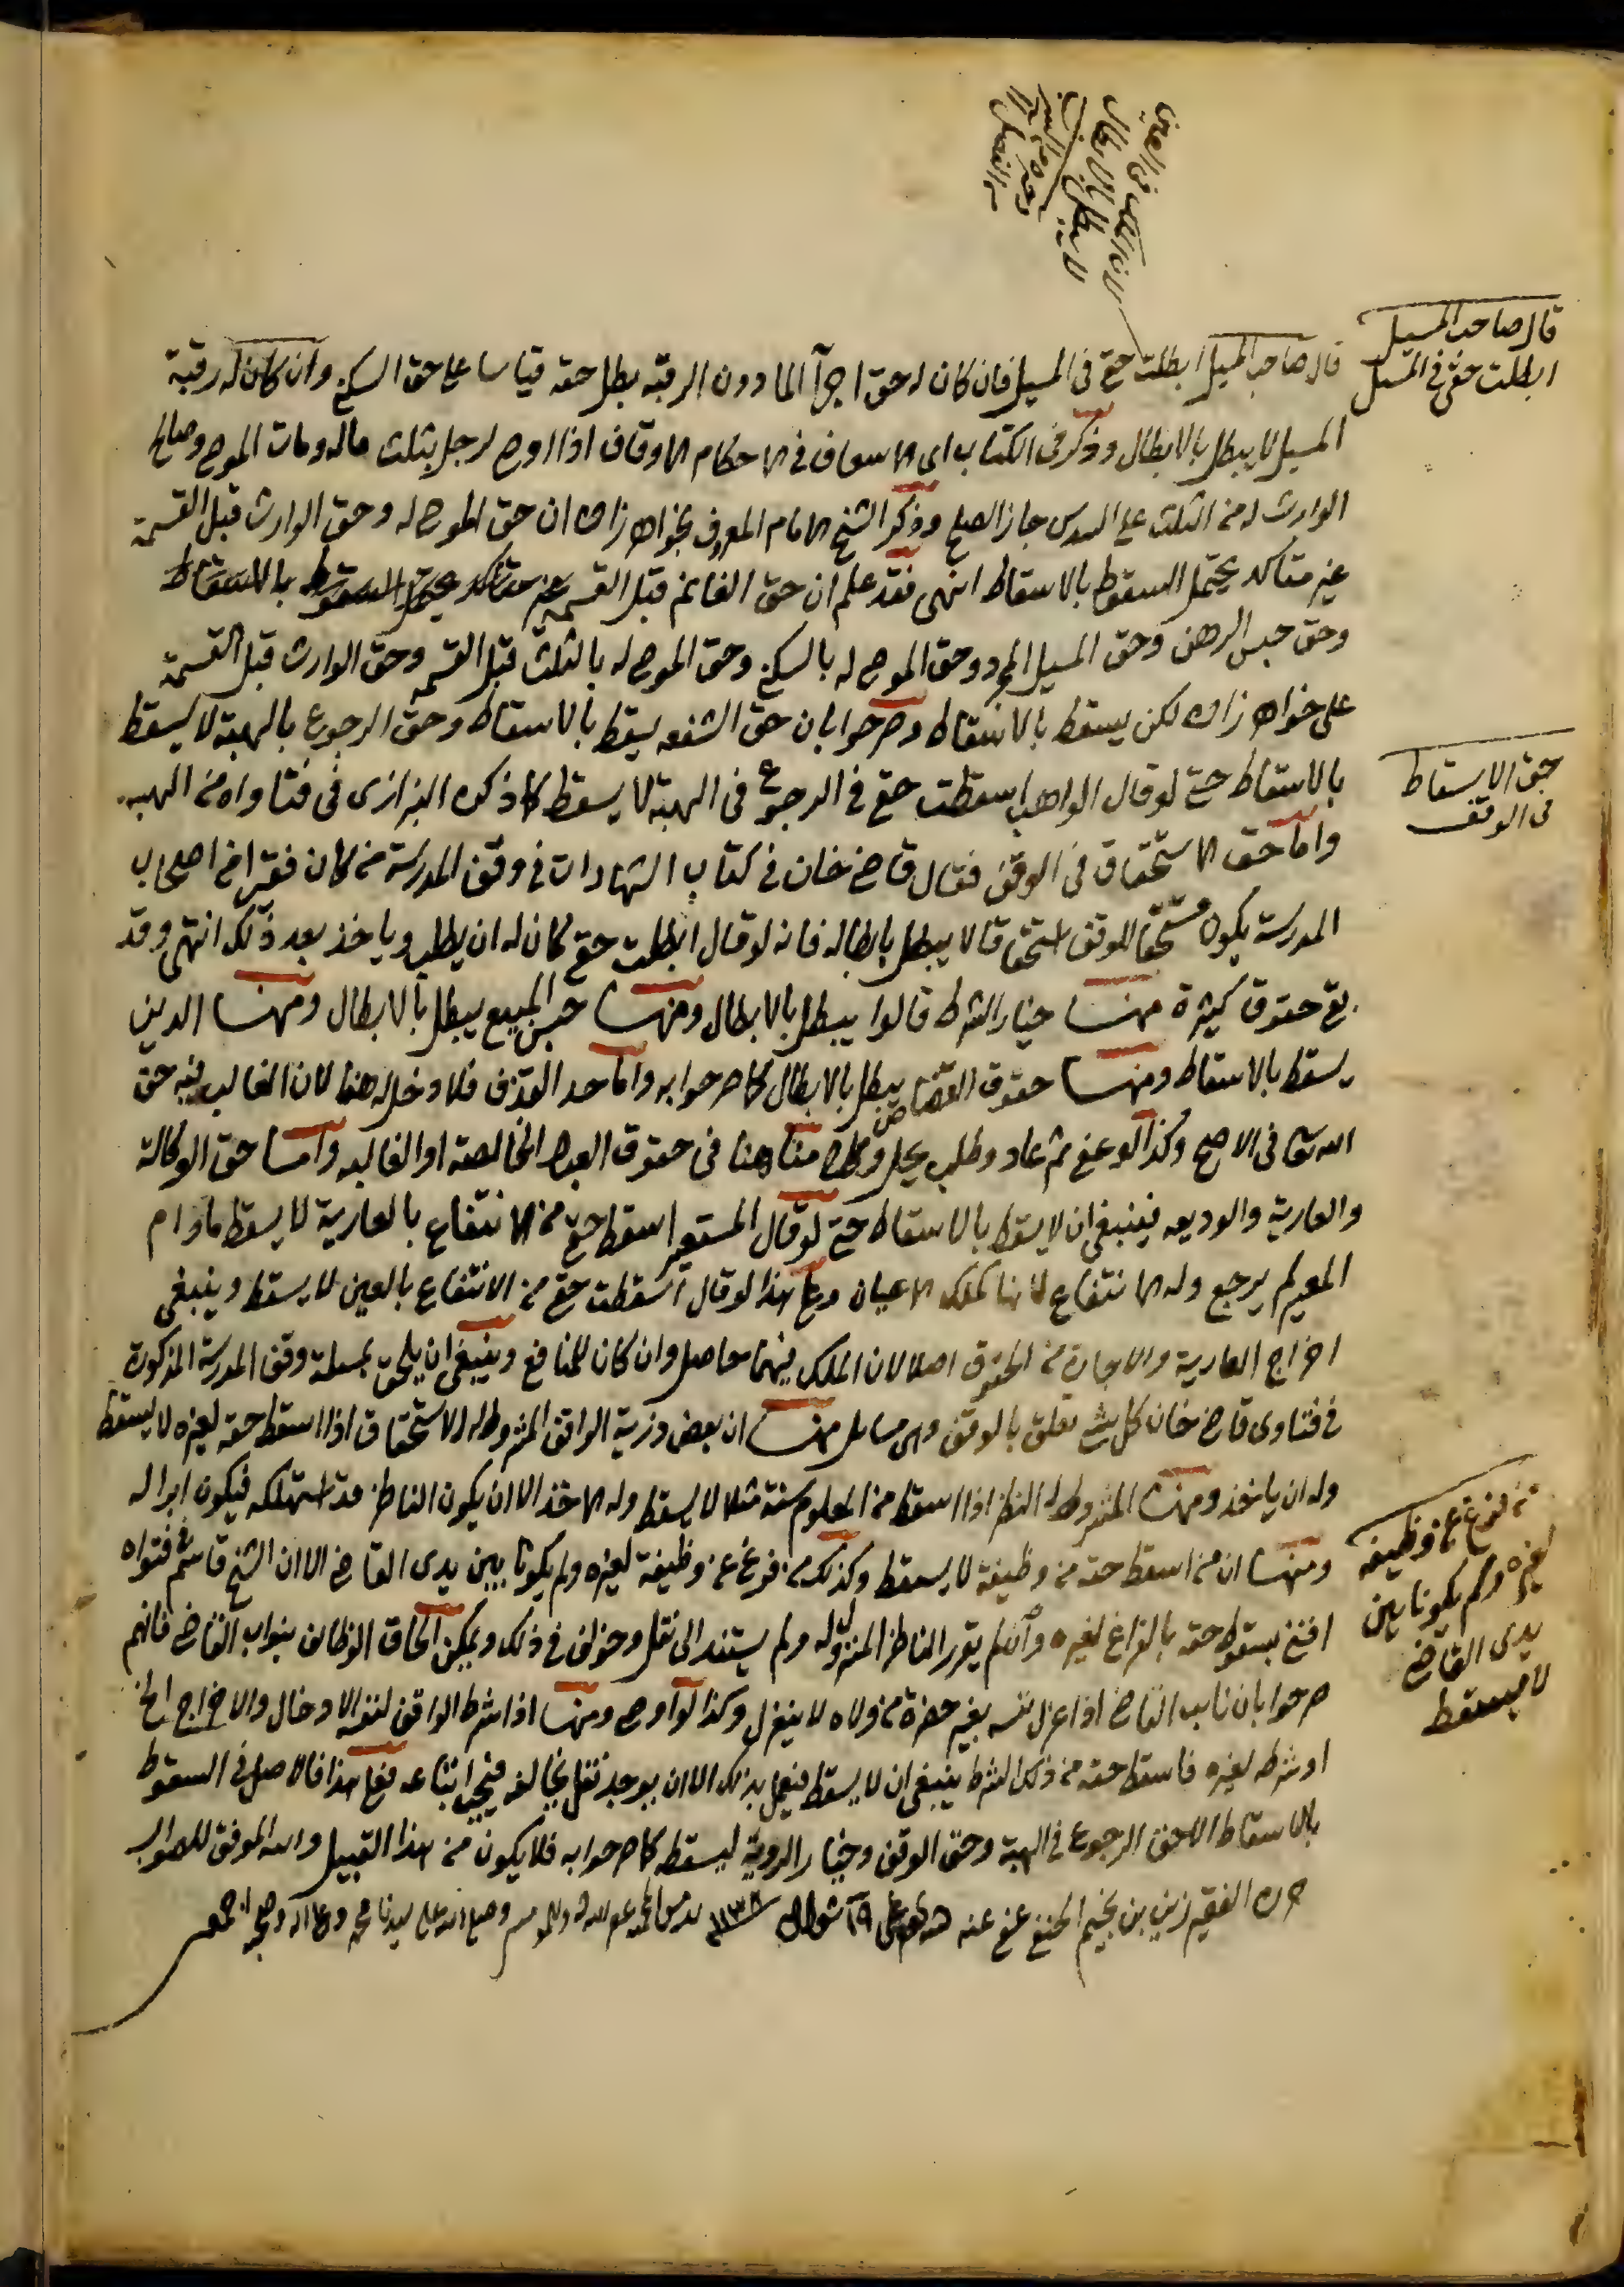 لان الملك فى العين
لا يبطل بالابطال
قال صاحب المسيل
ابطلت حقى فى المسيل
قال صاحب المسيل ابطلت حقى فى المسيل فان كان له حق اجرآ الما دون الرقبة بطل حقه قياسا على حق السكنى وان كان له رقبة
المسيل لا يبطل بالابطال وذكر فى الكتاب اى الاسعاف فى الاحكام الاوقاف اذا اوصى لرجل بثلث ماله ومات الموصى وصالح
الوارث له من الثلث على السدس جاز الصلح وذكر الشيخ الامام المعروف بخواهر زاده ان حق الموصى له وحق الوارث قبل القسمة
غير متاكد يحتمل السقوط بالاسقاط انتهى فقد علم ان حق الغانم قبل القسمة غير متاكد يحتمل السقوط بالاسقاط
وحق حبس الرهن وحق المسيل المجرد وحق الموصى له بالسكنى وحق الموصى له بالثلث قبل القسمه وحق الوارث قبل القسمة
على خواهر زاده لكن يسقط بالاسقاط وصرحوا بان حق الشفعه يسقط بالاسقاط وحق الرجوع بالهبة لا يسقط
بالاسقاط حتى لو قال الواهب اسقطت حقى فى الرجوع فى الهبة لا يسقط كما ذكره البزازى فى فتاواه من الهبه
حق الاسقاط
فى الوقف
واما حق الاستحقاق فى الوقف فقال قاضى خان فى كتاب الشهادات فى وقف المدرسة من كان فقيرا من اصحاب
المدرسة يكون مستحقا للوقف استحقاقا لا يبطل بابطاله فانه لو قال ابطلت حقى كان له ان يطلب وياخذ بعد ذلك انتهى وقد
بقى حقوق كثيرة منها خيار الشرط قالوا يبطل بالابطال ومنها حبس المبيع يبطل بالابطال ومنها الدين
يسقط بالاسقاط ومنها حقوق القصاص يبطل بالابطال كما صرحوا به واما حد القذف فلا دخل له هنا لان الغالب فيه حق
الله تعا فى الاصح وكذا لو عفى ثم عاد وطلب يحد وكلامنا هنا فى حقوق العبد الخالصة او الغالبه واما حق الوكالة
والعارية والوديعه فينبغى ان لا يسقط بالاسقاط حتى لو قال المستعير اسقط حقى من الانتفاع بالعارية لا يسقط ما دام
المعير لم يرجع وله الانتفاع لانها كملك الاعيان وعلى هذا لو قال اسقطت حقى من الانتفاع بالعين لا يسقط وينبغى
اخراج العارية والاجارة من الحقوق اصلا لان الملك فيهما حاصل وان كان للمنافع وينبغى ان يلحق بمسئلة وقف المدرسة المذكورة
فى فتاوى قاضى خان كل شى تعلق بالوقف وهى مسايل منها ان بعض ذرية الواقف المشروط له الاستحقاق اذا اسقط حقه لغيره لا يسقط
وله ان ياخذ ومنها المشروط له النظر اذا اسقط من المعلوم سنة مثلا لا يسقط وله الاخذ الا ان يكون الناظر قد استهلكه فيكون ابرا له
ومنها ان من اسقط حقه من وظيفة لا يسقط وكذلك من فرغ عن وظيفة لغيره ولم يكونا بين يدى القاضى الا ان الشيخ قاسم فى فتواه
من فرغ عن وظيفه
لغيره ولم يكونا بين
يدى القاضى
لا يسقط
افتى بسقوط حقه بالفراغ لغيره وان لم يقرر الناظر المنزول له ولم يستند الى نقل وخولف فى ذلك ويمكن الحاق الوظائف بنواب القاضى فانهم
صرحوا بان نايب القاضى اذا عزل نفسه بغير حضرة من ولاه لا ينعزل وكذا لو اوصى ومنها اذا شرط الواقف لنفسه الادخال والاخراج الخ
او شرطه لغيره فاسقط حقه من ذلك الشرط ينبغى ان لا يسقط فيعمل بذلك الا ان يوجد نقل يخالفه فيجب اتباعه فعلى هذا فالاصل فى السقوط
بالاسقاط الا حق الرجوع فى الهبة وحق الوقف وخيار الروية ليسقطه كما صرحوا به فلا يكون من هذا القبيل والله الموفق للصواب
حرره الفقير زين بن نجيم الحنفى عفى عنه ١٩ شوال ١١٣٨ وصلى الله على سيدنا محمد وعلى اله وصحبه اجمعين